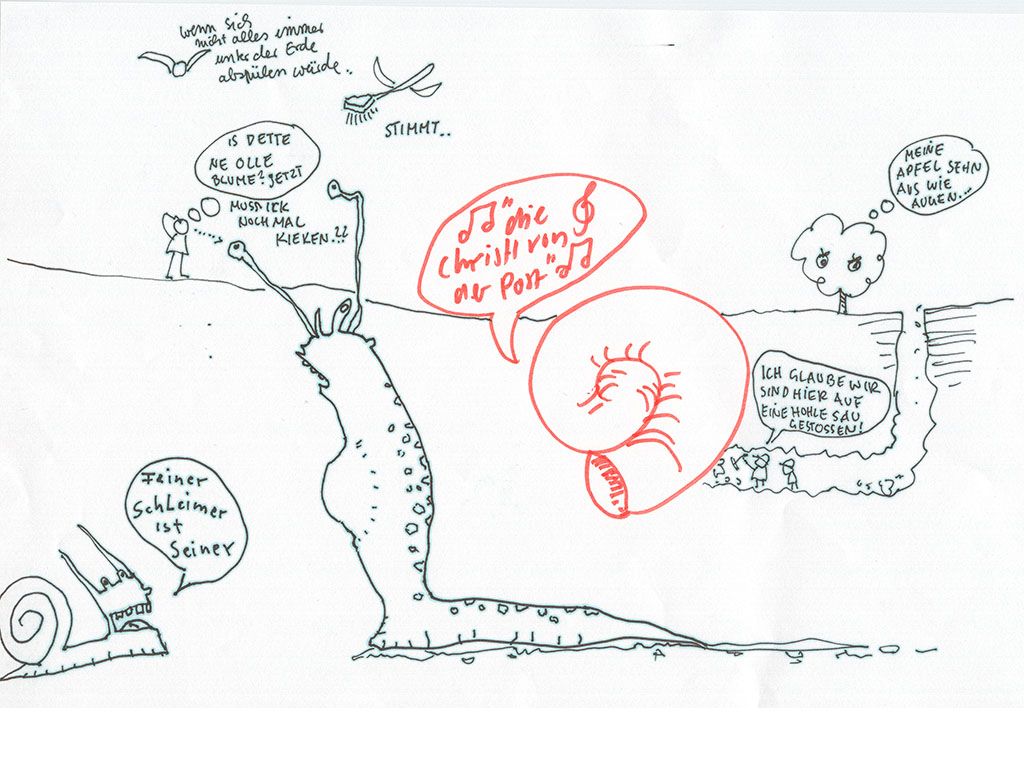 wenn sich
nicht alles immer
unter der Erde
abspülen würde..
STIMMT..
IS DETTE
NE OLLE
BLUME? JETZT
MUSS ICK
NOCH MAL
KIEKEN..??
"die
Christl von
der Post"
MEINE
APFEL SEHN
AUS WIE
AUGEN...
ICH GLAUBE WIR
SIND HIER AUF
EINE HOHLE SAU
GESTOSSEN!
Feiner
Schleimer
ist
Seiner